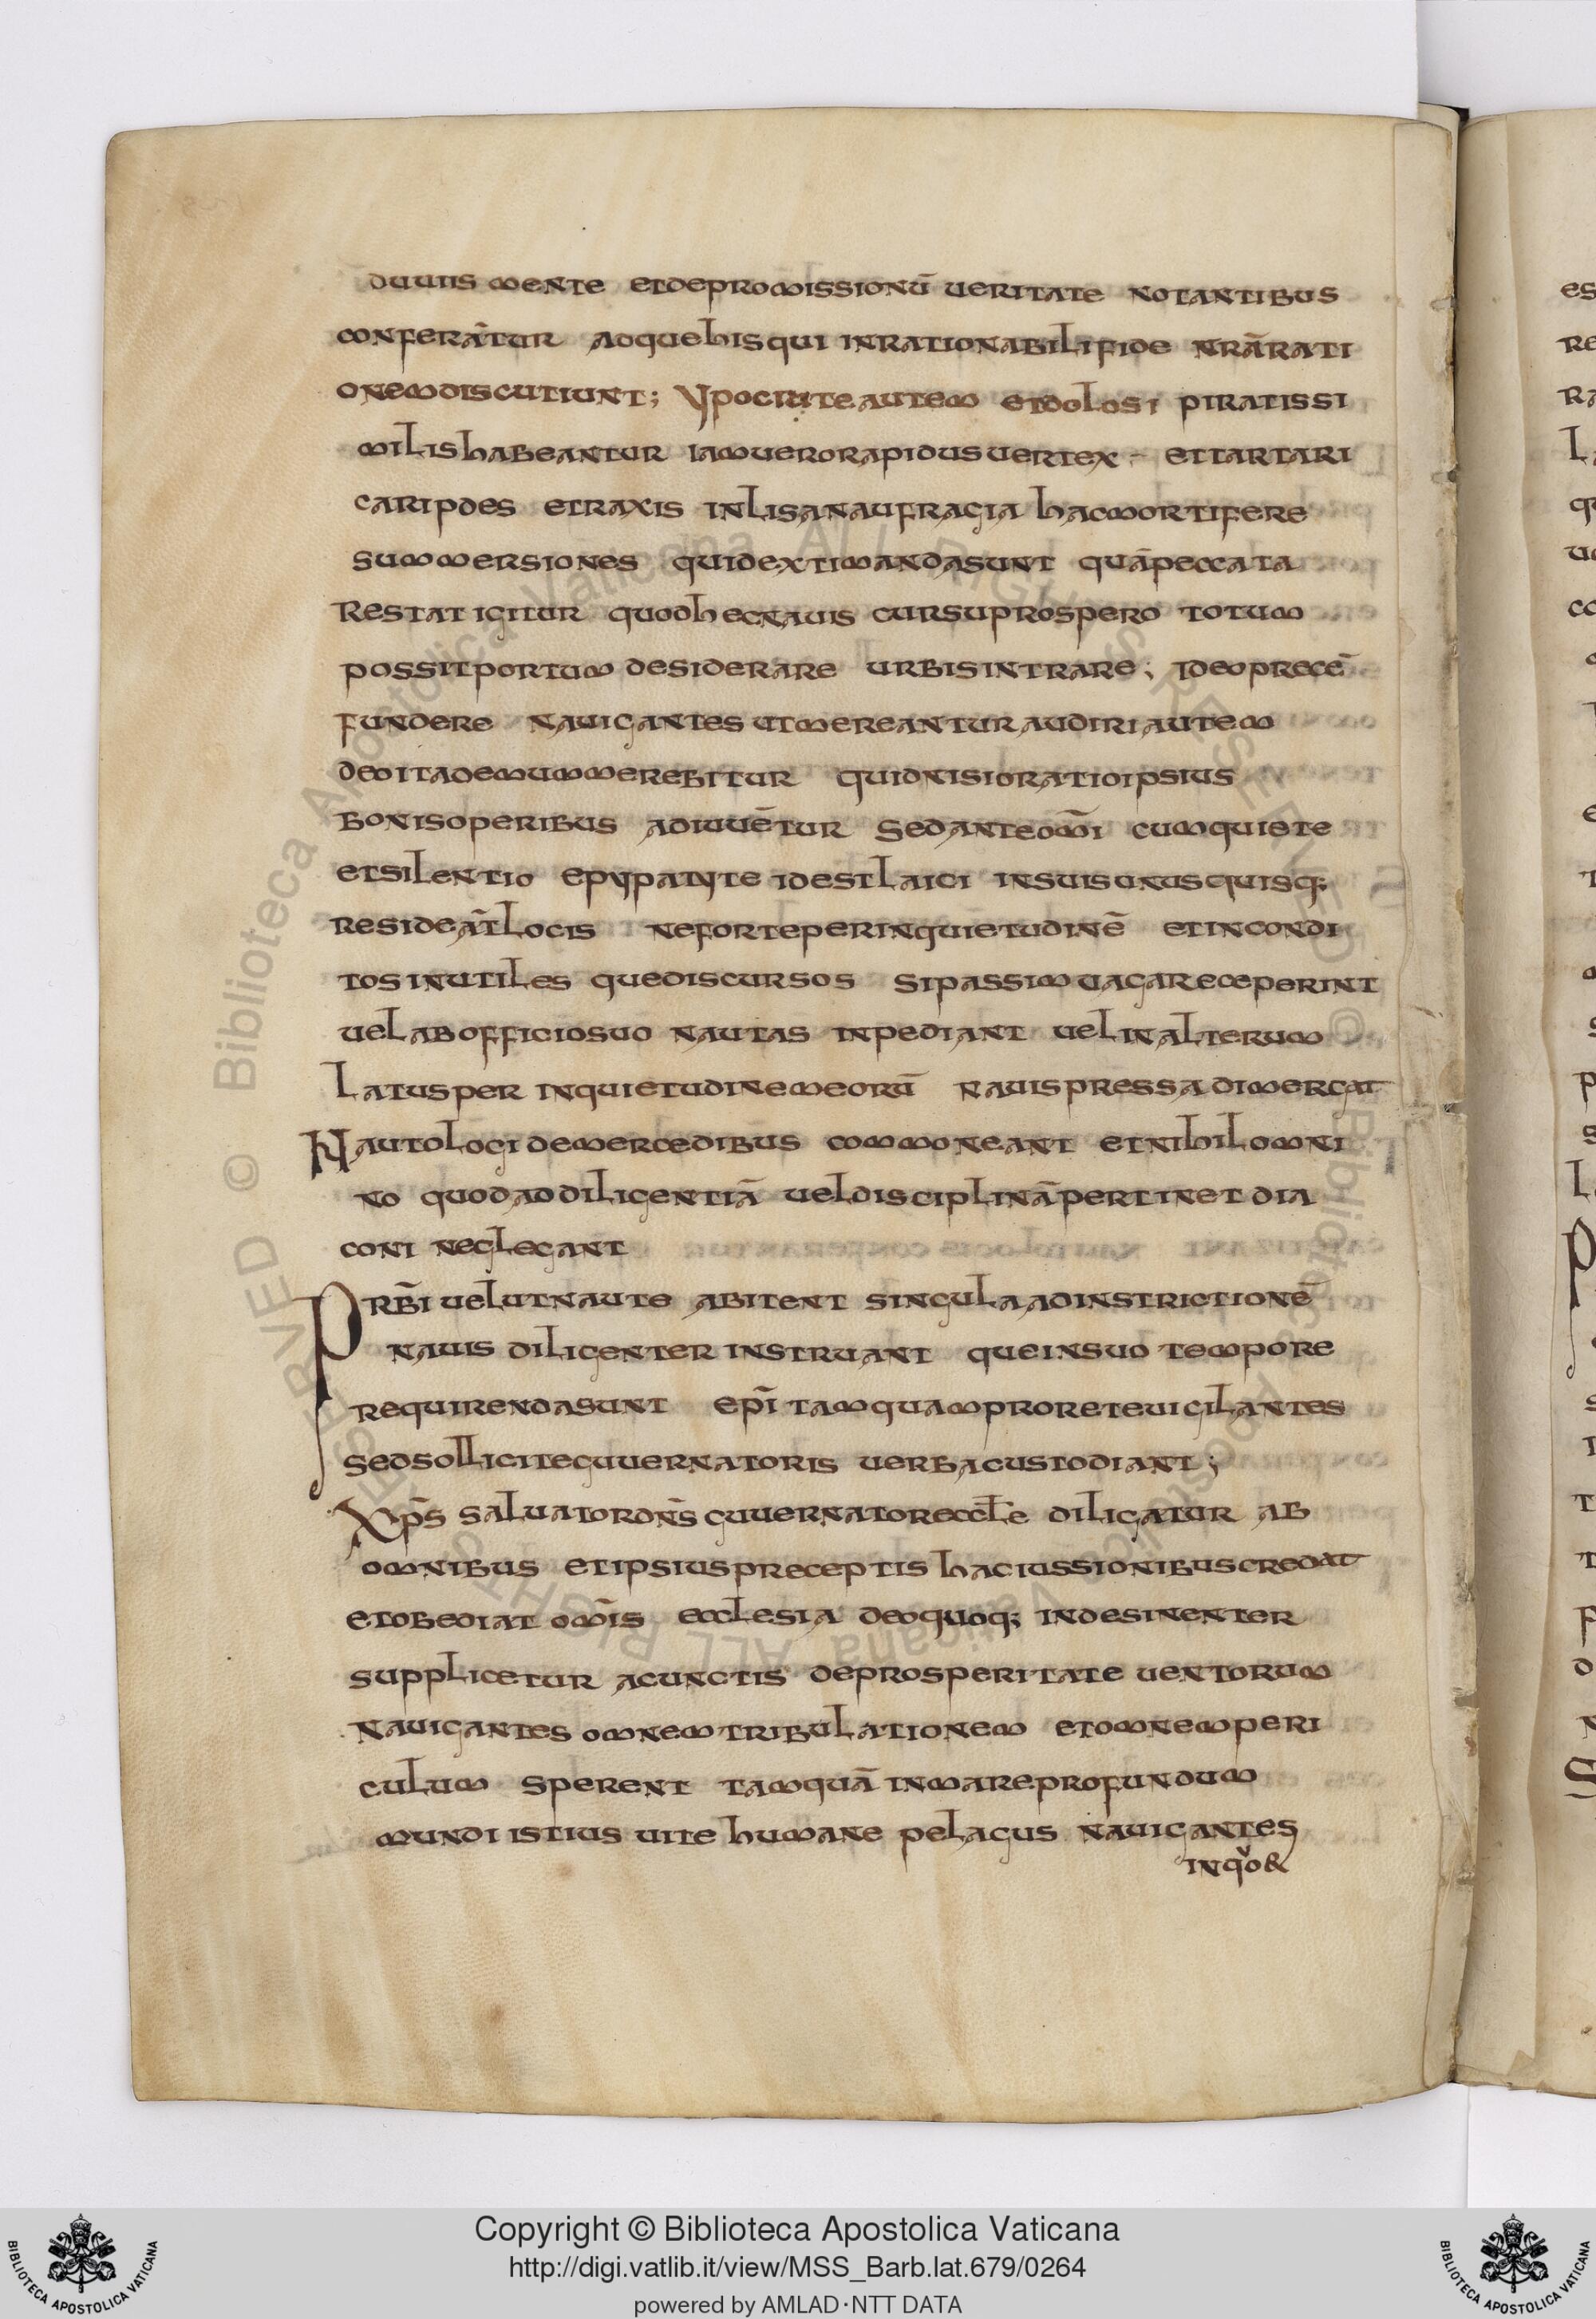 duuiis mente et de promissionū ueritate notantibus
conferāt̄ur adque his qui inrationabili fide nrā rati
onem discutiunt; Ypocrite autem et dolosi piratis si
milis habeantur iam uero rapidus uertex et tartari
caripdes et raxis inlisa naufragia hac mortifere
summersiones quid extimanda sunt quā peccata
Restat igitur quod hec nauis cursu prospero totum
possit portum desiderare urbis intrare; Ideo precē
fundere nauigantes ut mereantur audiri autem
deo ita demum merebitur quid nisi oratio ipsius
bonis operibus adiuuētur Sed ante om̄i cum quiete
et silentio epypatyte id est laici in suis unusquisq;
resideāt locis ne forte per inquietudinē et incondi
tos inutiles que discursos si passim uagare ceperint
uel ab officio suo nautas inpediant uel in alterum
Latus per inquietudinem eorū nauis pressa dimergat
Nautologi de mercedibus commoneant et nihil omni
no quod ad diligentiā uel disciplinā pertinet dia
coni neglegant
Prb̄i uelut naute abitent singula ad instrictionē
nauis diligenter instruant que in suo tempore
requirenda sunt epī tamquam prorete uigilantes
sed sollicite guuernatoris uerba custodiant;
Xp̄s saluator dn̄s guuernator eccl̄e diligatur ab
omnibus et ipsius preceptis hac iussionibus credat
et obediat om̄is ecclesia deo quoq; indesinenter
supplicetur a cunctis de prosperitate uentorum
Nauigantes omnem tribulationem et omnem peri
culum sperent tamquā in mare profundum
mundi istius uite humane pelagus nauigantes
in quo &
Copyright © Biblioteca Apostolica Vaticana
http://digi.vatlib.it/view/MSS_Barb.lat.679/0264
powered by AMLAD·NTT DATA
BIBLIOTECA APOSTOLICA VATICANA
BIBLIOTECA APOSTOLICA VATICANA